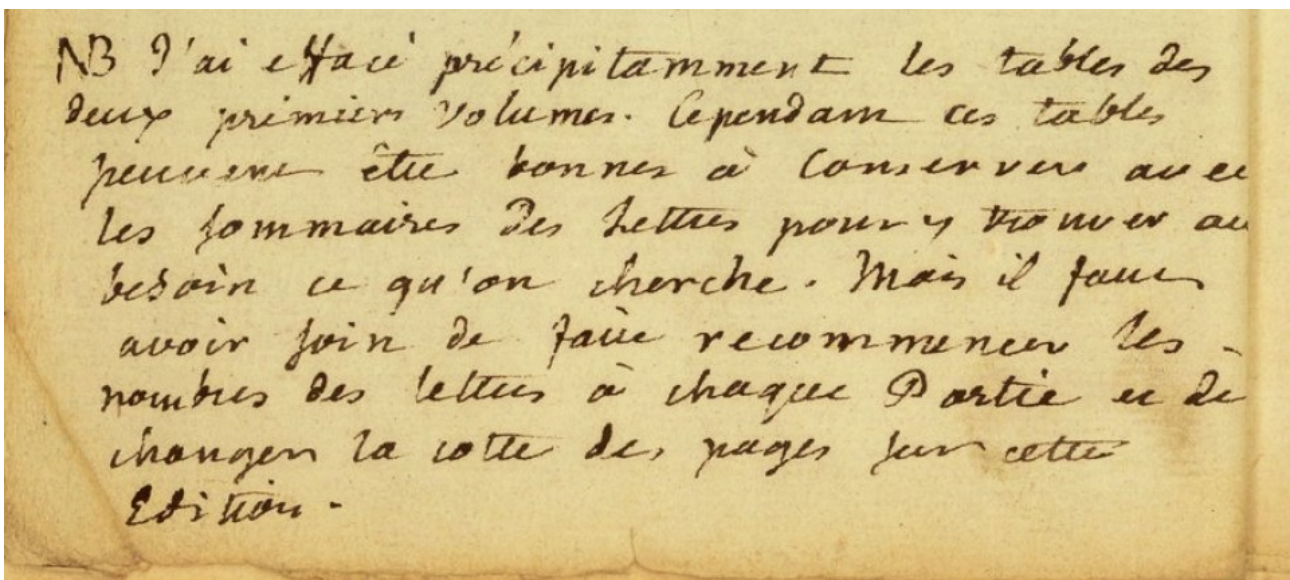 NB J'ai effacé précipitamment les tables des
deux premiers volumes. Cependant ces tables
peuvent être bonnes à conserver avec
les sommaires des Lettres pour y trouver au
besoin ce qu'on cherche. Mais il faut
avoir soin de faire recommencer les
nombres des lettres à chaque Partie et de
changer la cotte des pages sur cette
Edition.